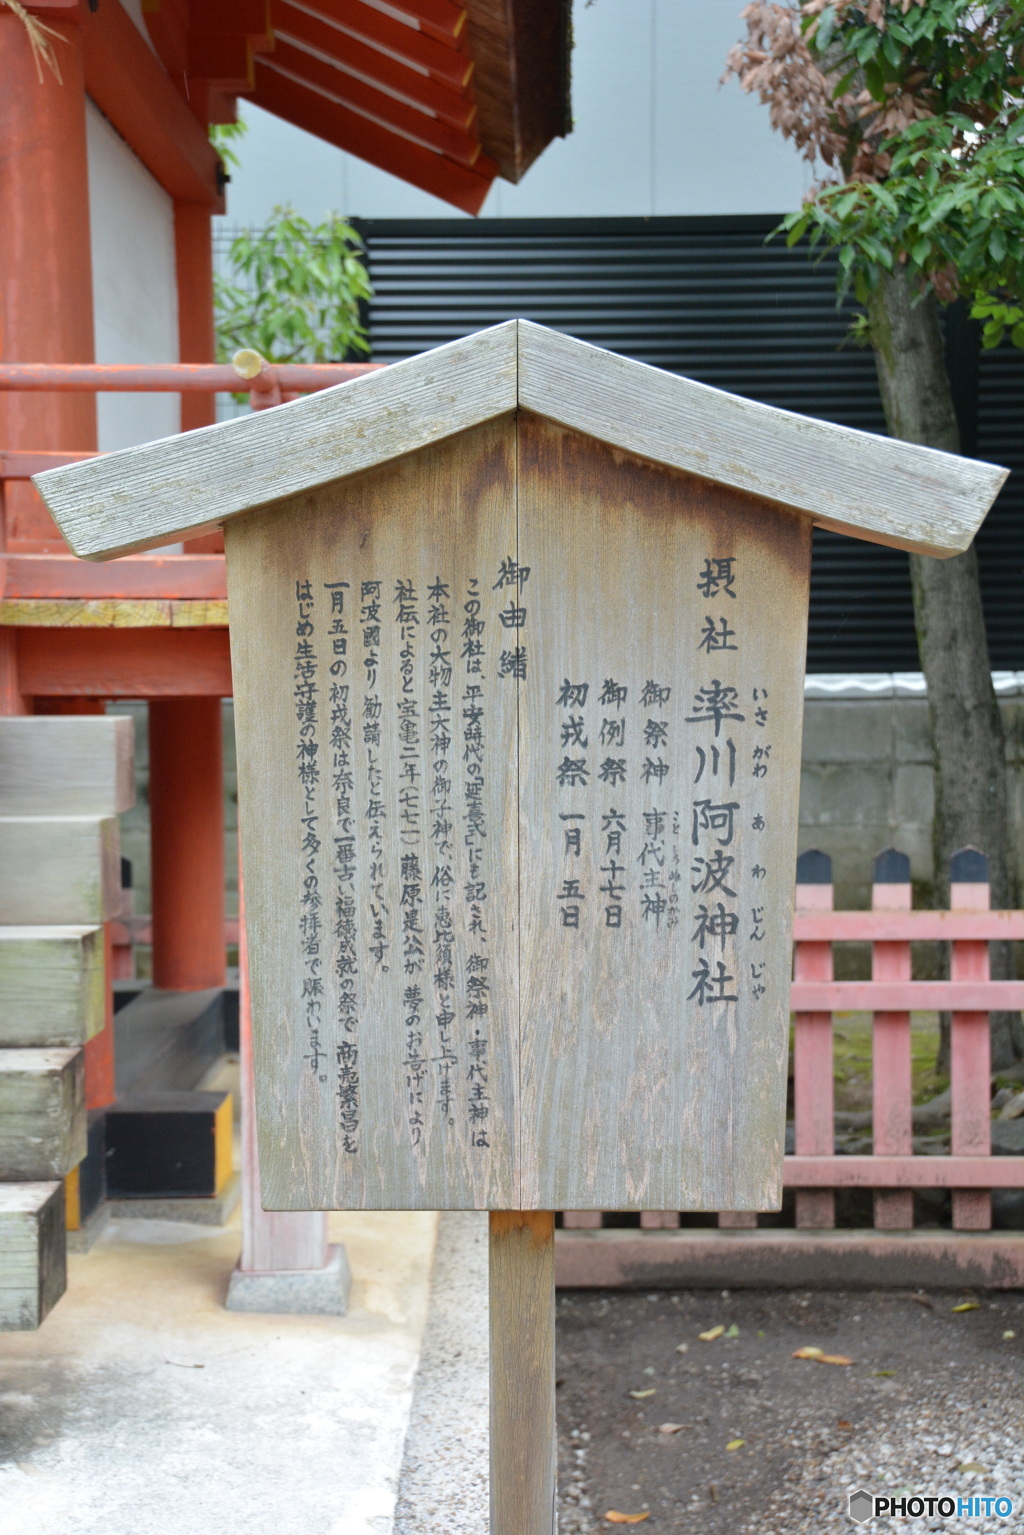 摂社 率川阿波神社
いさ がわ あ わ じん じゃ
御祭神 事代主神
こと しろ ぬしのかみ
御例祭 六月十七日
初戎祭 一月 五日
御由緒
この御社は、平安時代の「延喜式」にも記され、御祭神・事代主神は
本社の大物主大神の御子神で、俗に恵比須様と申し上げます。
社伝によると宝亀二年(七七一)藤原是公が 夢のお告げにより
阿波國より勧請したと伝えられています。
一月五日の初戎祭は奈良で一番古い福徳成就の祭で 商売繁昌を
はじめ生活守護の神様として多くの参拝者で賑わいます。
PHOTOHITO